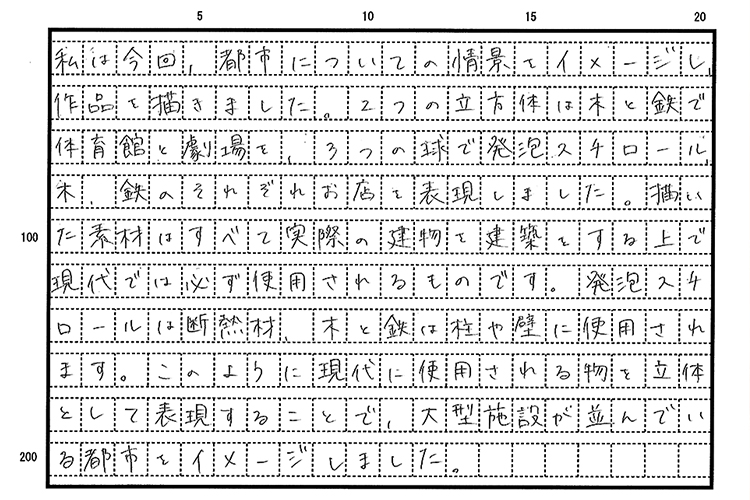 5 10 15 20
私は今回、都市についての情景をイメージし、
作品を描きました。2つの立方体は木と鉄で
体育館と劇場を、3つの球で発泡スチロール、
木、鉄のそれぞれお店を表現しました。描い
100 た素材はすべて実際の建物を建築をする上で
現代では必ず使用されるものです。発泡スチ
ロールは断熱材、木と鉄は柱や壁に使用され
ます。このように現代に使用される物を立体
として表現することで、大型施設が並んでい
200 る都市をイメージしました。